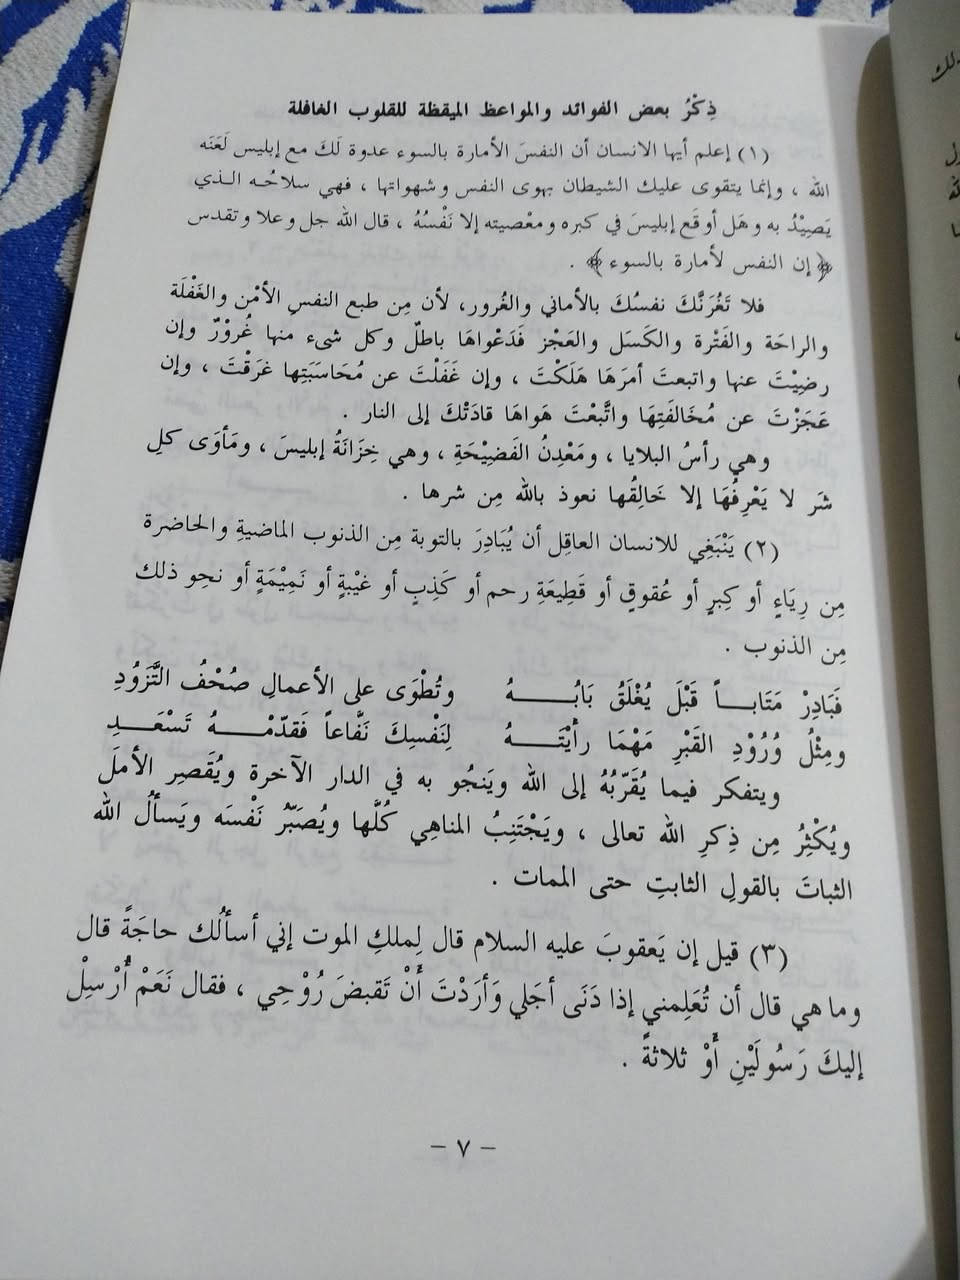 ذِكْرُ بعض الفوائد والمواعظ الميقظة للقلوب الغافلة
(١) إعلم أيها الانسان أن النفسَ الأمارة بالسوء عدوة لَكَ مع إبليس لَعَنَه
الله ، وإنما يتقوى عليك الشيطان بهوى النفس وشهواتها ، فهي سلاحُه الذي
يَصِيْدُ به وهَل أوقَع إبليسَ في كبره ومعْصيته إلا نَفْسُهُ ، قال الله جل وعلا وتقدس
﴿ إن النفس لأمارة بالسوء ﴾ .
فلا تَغُرَنَّكَ نفسُكَ بالأماني والغُرور، لأن مِن طبع النفسِ الأمْن والغَفْلَة
والراحَة والفَتْرة والكَسَل والعَجْز فَدَعْواهَا باطلٌ وكل شىء منها غُروْرٌ وإن
رضِيْتَ عنها واتبعتَ أمرَهَا هَلَكْتَ ، وإن غَفَلْتَ عن مُحَاسَبَتِها غرَقْتَ ، وإن
عَجَزْتَ عن مُخَالفَتِهَا واتَّبعْتَ هَواهَا قادَتْكَ إلى النار .
وهي رأسُ البلايا ، ومَعْدِنُ الفَضِيْحَةِ ، وهي خِزَانَةُ إبليسَ ، ومَأوَى كلِ
شَر لا يَعْرِفُهَا إلا خَالِقُها نعوذ بالله مِن شرها .
(٢) يَنْبَغِي للانسان العاقِل أن يُبَادِرَ بالتوبة مِن الذنوب الماضيةِ والحاضرة
مِن رِيَاءٍ أو كِبرٍ أو عُقوقٍ أو قَطِيعَةِ رحم أو كَذِبٍ أو غيْبةٍ أو نَمِيْمَةٍ أو نحوِ ذلك
مِن الذنوب .
فَبَادِرْ مَتَاباً قَبْلَ يُغْلَقُ بَابُهُ وتُطْوَى على الأعمالِ صُحْفُ التَّزَوُّدِ
ومِثْلُ وُرُوْدِ القَبْرِ مَهْمَا رأيْتَهُ لِنَفْسِكَ نَفَّاعاً فَقدّمْهُ تَسْعَدِ
ويتفكر فيما يُقَرّبُهُ إلى الله ويَنجُو به في الدار الآخرة ويُقصِر الأملَ
ويُكْثِرُ مِن ذِكرِ الله تعالى ، ويَجْتَنِبُ المناهِي كُلَّها ويُصَبّرُ نَفْسَه ويَسألُ الله
الثباتَ بالقولِ الثابتِ حتى الممات .
(٣) قيل إن يَعقوبَ عليه السلام قال لِملكِ الموت إني أسألُك حاجَةً قال
وما هي قال أن تُعَلِمني إذا دَنَى أجَلي وَأرَدْتَ أَنْ تَقبضَ رُوْحِي ، فقال نَعَمْ أُرْسِلْ
إليكَ رَسُولَيْنِ أوْ ثلاثةً .
– ٧ –